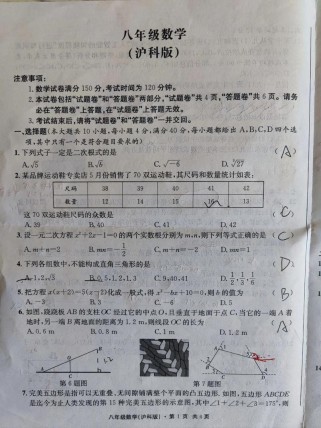 八年级数学
(沪科版)
注意事项:
1.数学试卷满分150分,考试时间为120分钟。
2.本试卷包括“试题卷”和“答题卷”两部分,“试题卷”共4页,“答题卷”共6页。请务
必在“答题卷”上答题,在“试题卷”上答题无效。
3.考试结束后,请将“试题卷”和“答题卷”一并交回。
一、选择题(本大题共10小题,每小题4分,满分40分,每小题都给出A,B,C,D四个选
项,其中只有一个是符合题目要求的)
1.下列式子一定是二次根式的是 (A)
A.√5 B. C.√-6 D.√27
2.某品牌运动鞋专卖店5月份销售了70双运动鞋,其尺码和数量统计如表:
尺码 38 39 40 41 42
数量 12 14 15 16 13
这70双运动鞋尺码的众数是 (C)
A.39 B.40 C.41 D.42
3.设一元二次方程x²+2x-1=0的两个实数根分别为m,n,则下列等式正确的是 (C)
A.m+n=2 B.mn=-1/2 C.m+n=-2 D.mn=1
4.下列各组数中,不能构成直角三角形的是 (D)
A.1,2,√5 B.0.5,1.2,1.3 C.9,40,41
5.把方程 化成一般式,得x²-bx+10=0,则b的值为 B
A.-3 B.3 C.-6 D.5
6.如图,跷跷板AB的支柱OC经过它的中点O,且垂直于地面于点C,当它的一端A着
地时,另一端B离地面的距离为1.2m,则线段OC的长为 (A)
A.0.6 m B.0.8 m C.1 m D.1.2 m
第6题图 第7题图
7.完美五边形是指可以无重叠、无间隙铺满整个平面的凸五边形.如图,五边形ABCDE
是迄今为止人类发现的第15种完美五边形的示意图,其中∠1+∠2+∠3=175°,则
八年级数学(沪科版)·第1页 共4页